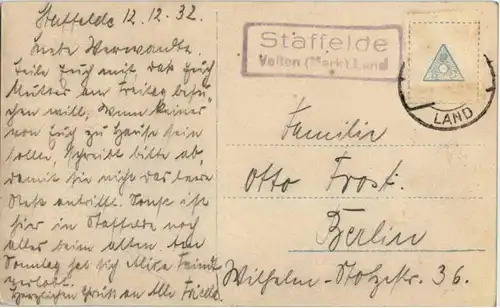 Staffelde 12.12.32.
Liebe Verwandte.
Teile Euch mit, daß Euch
Mutter am Freitag besu-
chen will. Wenn keiner
von Euch zu Hause sein
sollte, schreibt bitte ab,
damit sie nicht das leere
Nest antrifft. Sonst ist
hier in Staffelde noch
alles beim alten. Am
Sonntag hat sich
verlobt.
Herzlichen Gruß an Alle
Staffelde
Velten (Mark) Land
LAND
Familie
Otto Frost.
Berlin
Wilhelm-Stolzestr. 36.